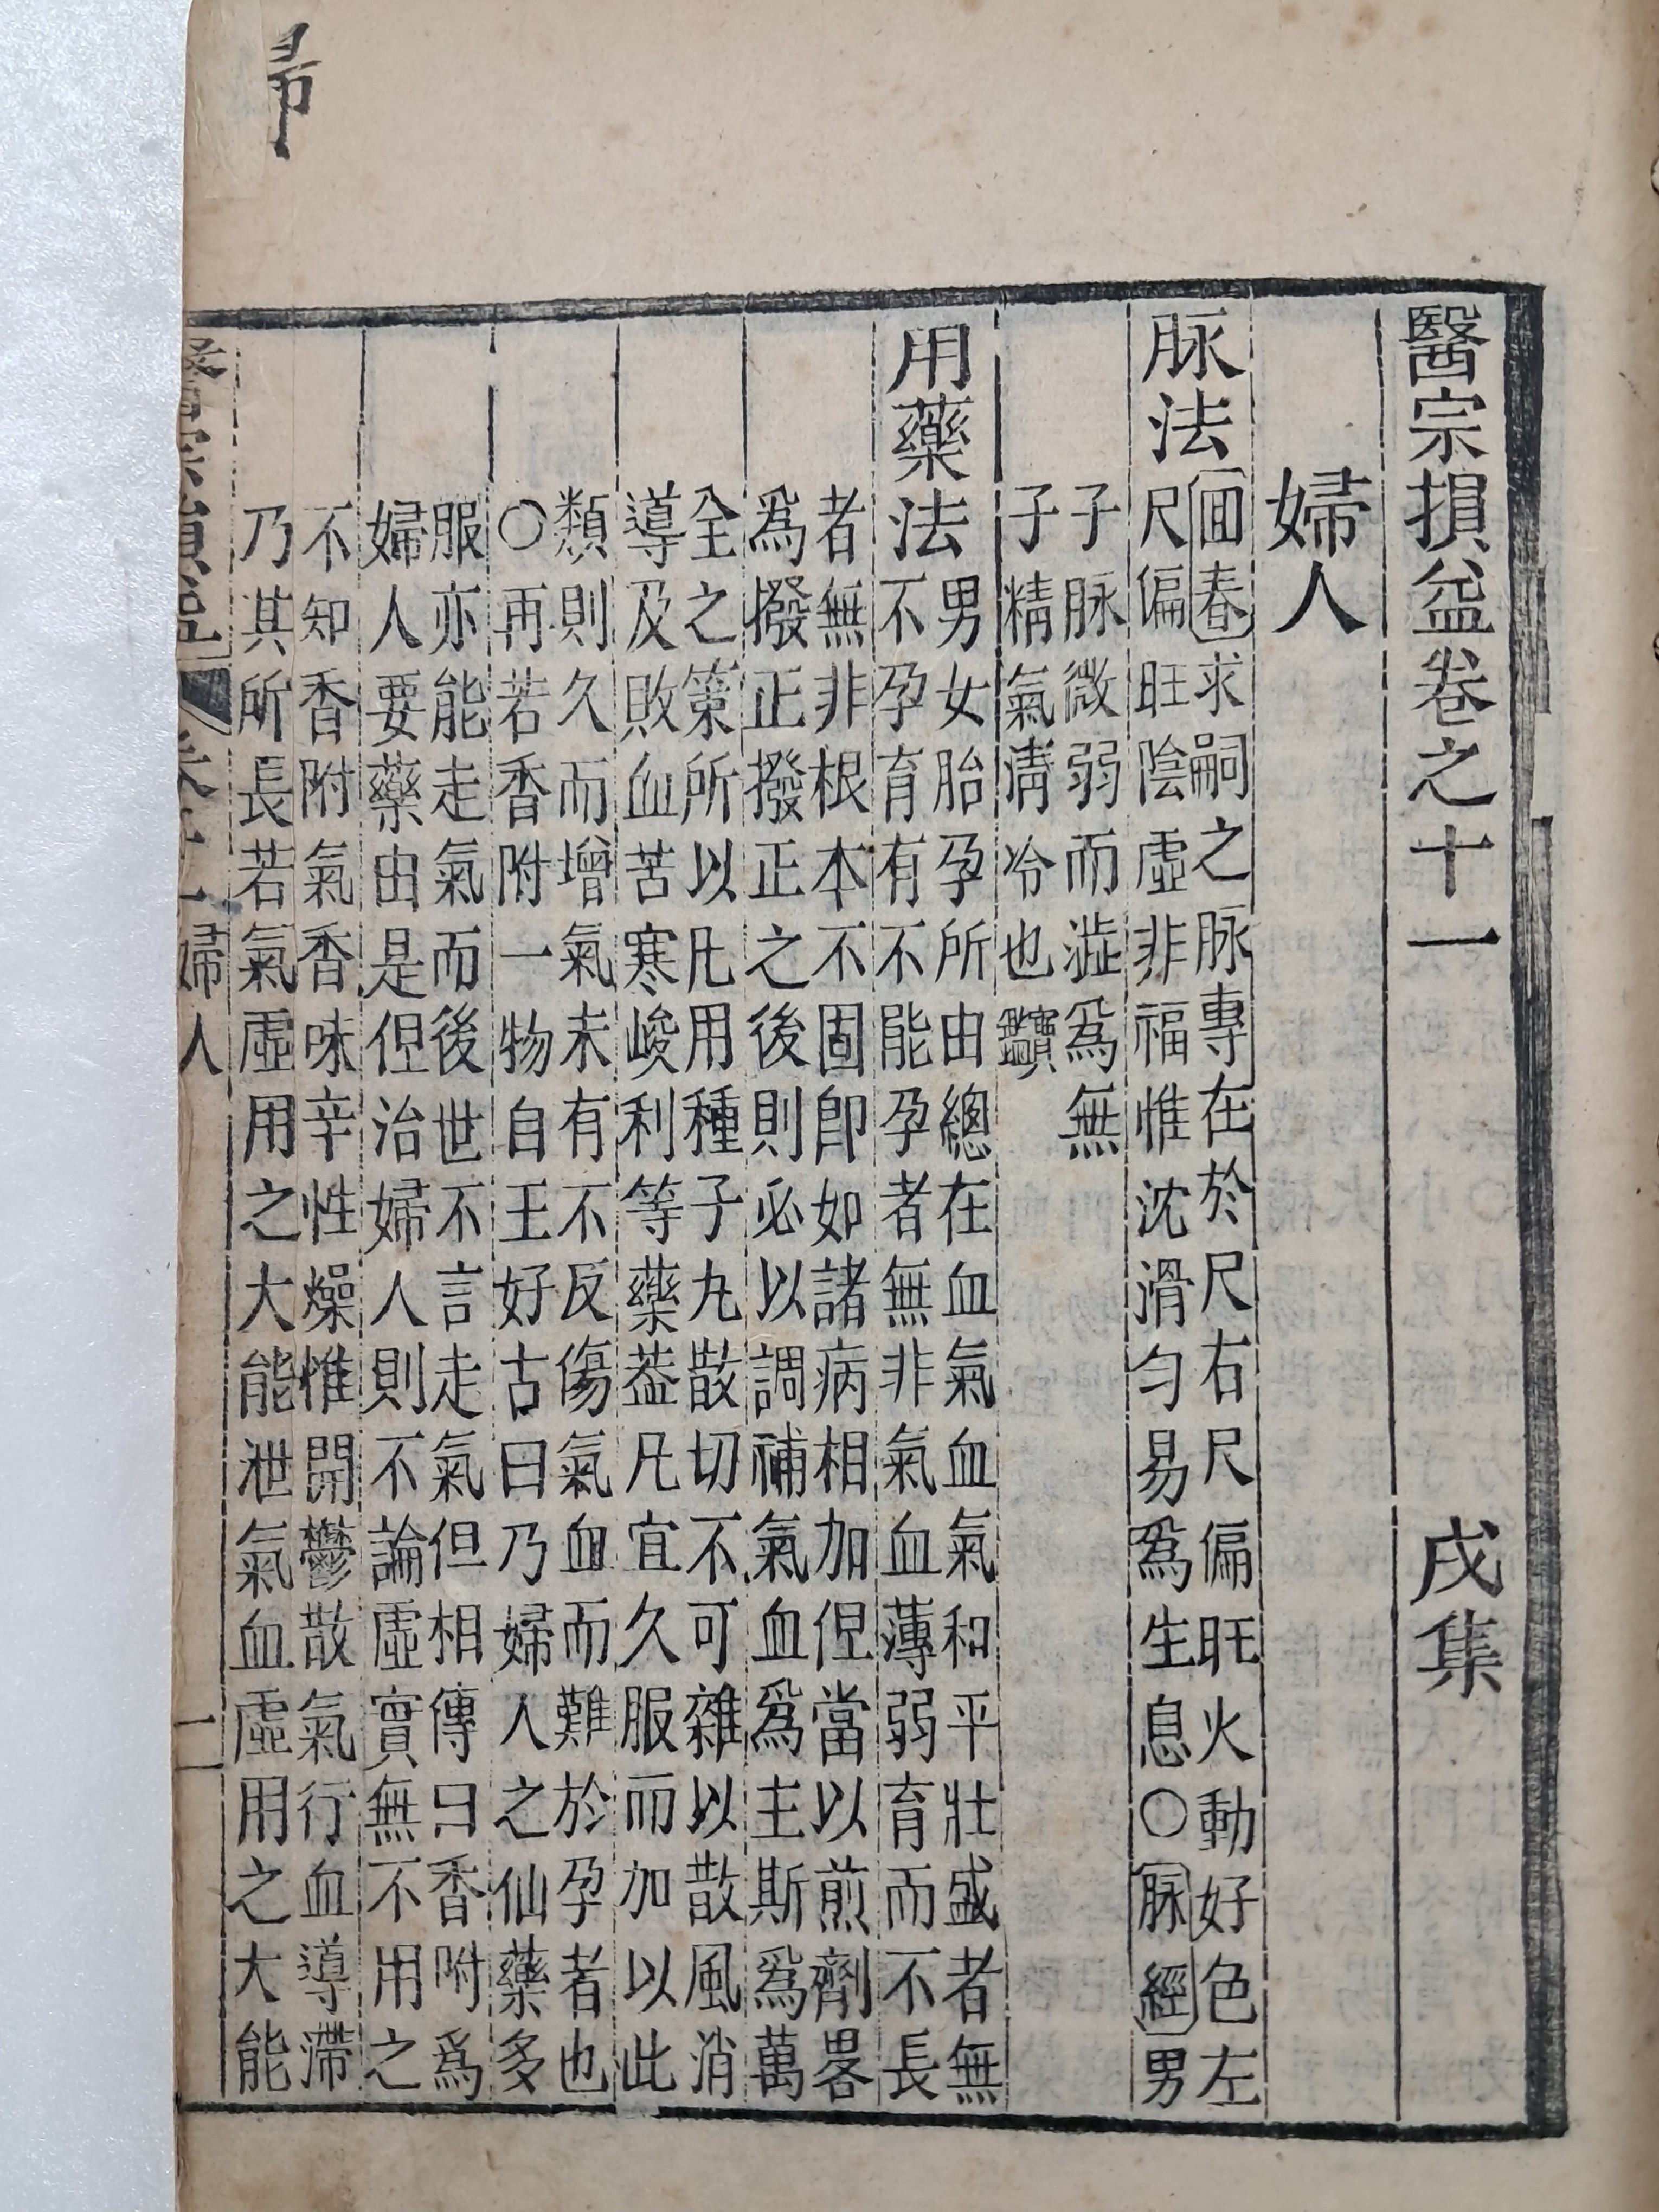 醫宗損益卷之十一　戌集
婦人
脉法
回春求嗣之脉專在於尺右尺偏旺火動好色左
尺偏旺陰虛非福惟沈滑勻易爲生息○脉經男
子脉微弱而澁爲無
子精氣淸冷也
用藥法
男女胎孕所由總在血氣血氣和平壯盛者無
不孕育有不能孕者無非氣血薄弱育而不長
者無非根本不固卽如諸病相加但當以煎劑畧
爲撥正撥正之後則必以調補氣血爲主斯爲萬
全之策所以凡用種子丸散切不可雜以散風消
導及敗血苦寒峻利等藥盖凡宜久服而加以此
類則久而增氣未有不反傷氣血而難於孕者也
○再若香附一物自王好古曰乃婦人之仙藥多
服亦能走氣而後世不言走氣但相傳曰香附爲
婦人要藥由是但治婦人則不論虛實無不用之
不知香附氣香味辛性燥惟開鬱散氣行血導滯
乃其所長若氣虛用之大能泄氣血虛用之大能
婦人
二